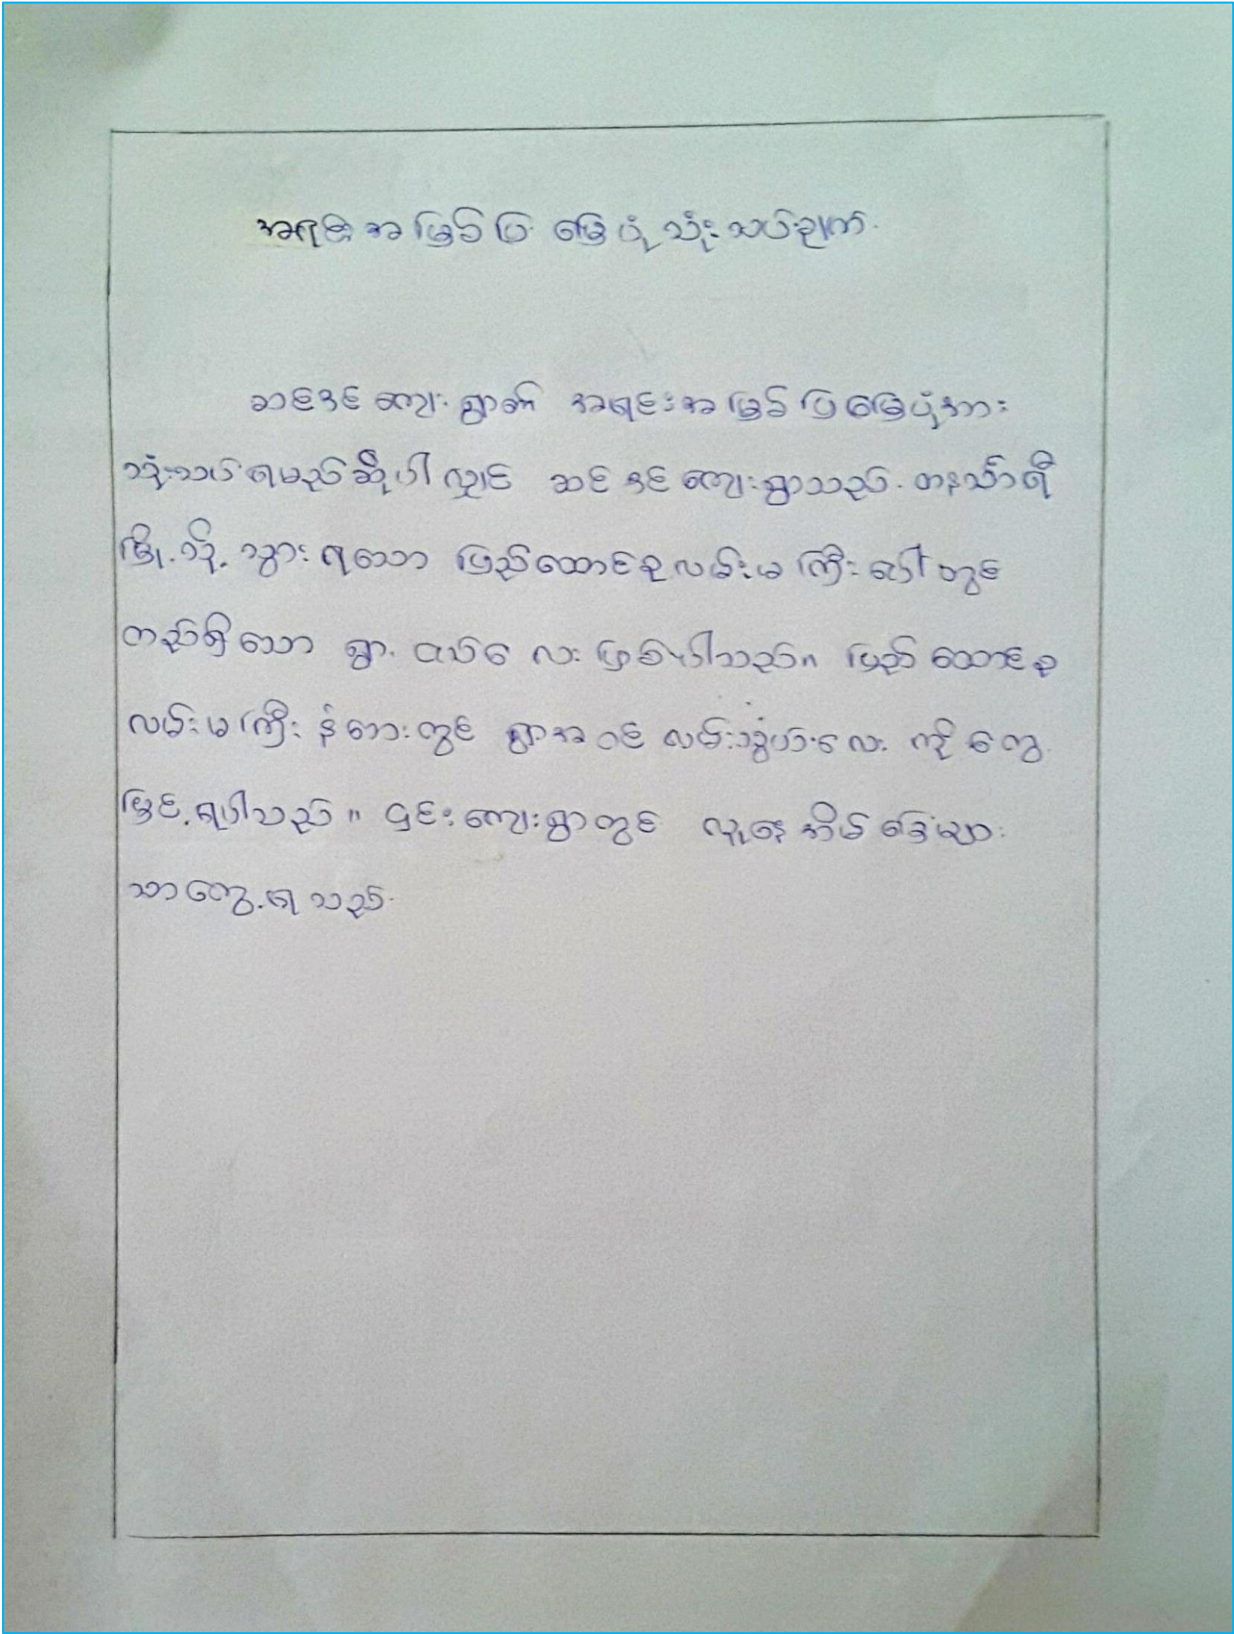 အရင်းအမြစ်ပြ မြေပုံသုံးသပ်ချက်
ဆင်ဒင်ကျေးရွာ၏ အရင်းအမြစ်ပြမြေပုံအား
သုံးသပ်ရမည်ဆိုပါလျှင် ဆင်ဒင်ကျေးရွာသည် တနင်္သာရီ
မြို့သို့ သွားရသော ပြည်ထောင်စုလမ်းမကြီးပေါ်တွင်
တည်ရှိသော ရွာငယ်လေးဖြစ်ပါသည်။ ပြည်ထောင်စု
လမ်းမကြီးနံဘေးတွင် ရွာအဝင်လမ်းသွယ်လေးကိုတွေ့
မြင်ရပါသည်။ ၎င်းကျေးရွာတွင် လူနေအိမ်ခြေများ
သာတွေ့ရသည်